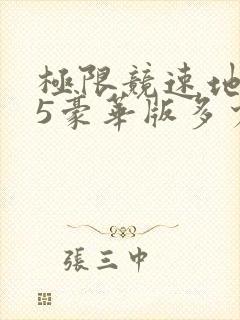 極限競速地
5豪華版多
張三中